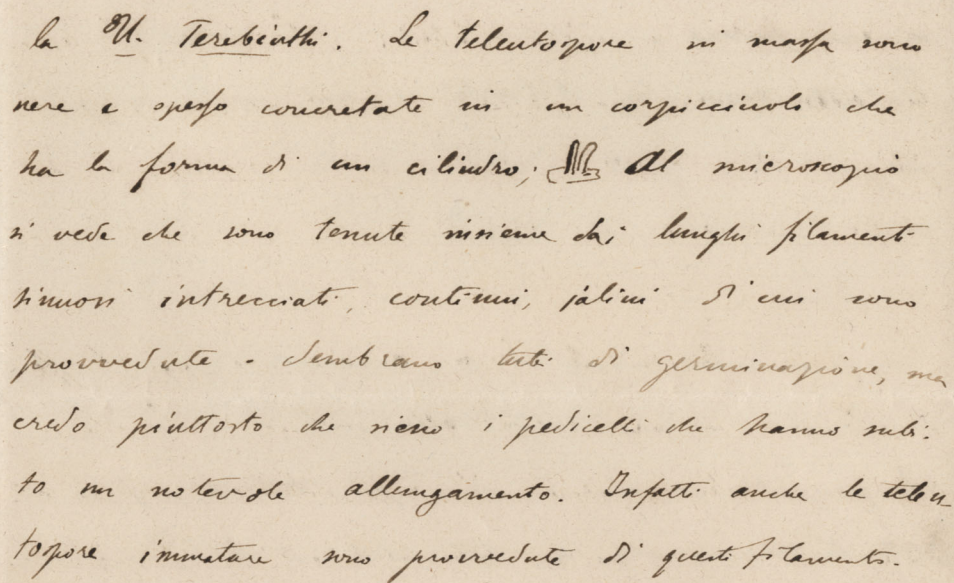 la U. Terebinthi. Le teleutospore in massa sono
nere e spesso concretate in un corpicciuolo che
ha la forma di un cilindro; Al microscopio
si vede che sono tenute insieme dai lunghi filamenti
sinuosi intrecciati, continui, jalini di cui sono
provvedute. Sembrano tubi di germinazione, ma
credo piuttosto che sieno i pedicelli che hanno subi-
to un notevole allungamento. Infatti anche le teleu-
tospore immature sono provvedute di questi filamenti.